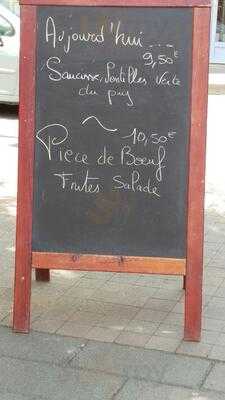 Aujourd'hui ----
9,50€
Saucisse, Lentilles Verte
du puy
~ 10,50€
Pièce de Bœuf
Frites Salade